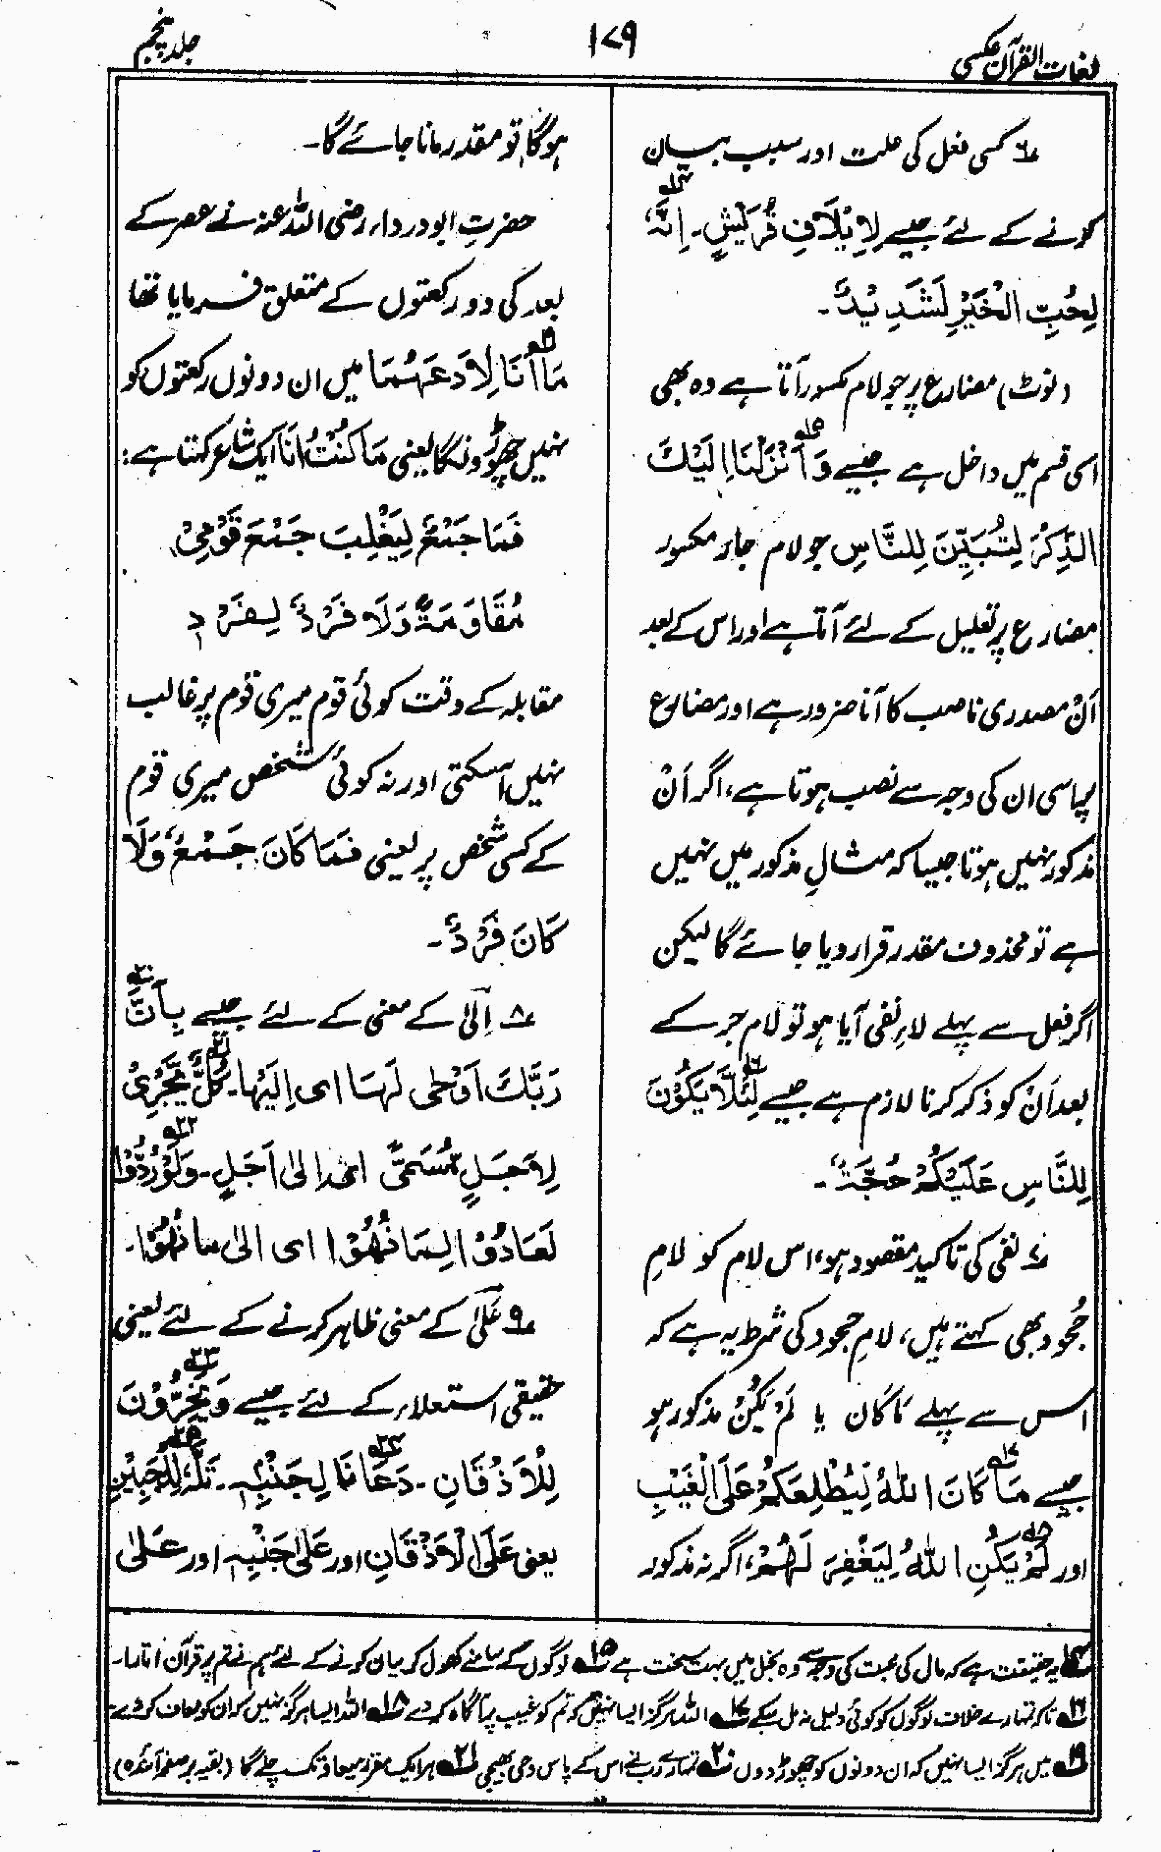 لغات القرآن عکسی
۱۷۹
جلد پنجم
۶؎ کسی فعل کی علت اور سبب بیان
کرنے کے لئے جیسے لِاِیْلَافِ قُرَیْشٍ۔ اِنَّہٗ
لِحُبِّ الْخَیْرِ لَشَدِیْدٌ۱۴؎۔
(نوٹ) مضارع پر جو لام مکسور آتا ہے وہ بھی
اسی قسم میں داخل ہے جیسے وَاَنْزَلْنَا اِلَیْكَ۱۵؎
الذِّکْرَ لِتُبَیِّنَ لِلنَّاسِ جو لام جار مکسور
مضارع پر تعلیل کے لئے آتا ہے اور اس کے بعد
اَنْ مصدری ناصب کا آنا ضرور ہے اور مضارع
پر اسی ان کی وجہ سے نصب ہوتا ہے، اگر اَنْ
مذکور نہیں ہوتا جیسا کہ مثالِ مذکور میں نہیں
ہے تو محذوف مقدر قرار دیا جائے گا لیکن
اگر فعل سے پہلے لاءِ نفی آیا ہو تو لام جر کے
بعد اَنْ کو ذکر کرنا لازم ہے جیسے لِئَلَّا یَکُوْنَ۱۶؎
لِلنَّاسِ عَلَیْکُمْ حُجَّۃٌ۔
۷؎ نفی کی تاکید مقصود ہو، اس لام کو لامِ
جُحود بھی کہتے ہیں، لامِ جحود کی شرط یہ ہے کہ
اس سے پہلے مَا کَانَ یا لَمْ یَکُنْ مذکور ہو
جیسے مَا کَانَ اللّٰہُ لِیُطْلِعَکُمْ عَلَی الْغَیْبِ۱۷؎
اور لَمْ یَکُنِ اللّٰہُ لِیَغْفِرَ لَھُمْ۱۸؎، اگر نہ مذکور
ہوگا، تو مقدر مانا جائے گا۔
حضرتِ ابو درداء رضی اللہ عنہ نے عصر کے
بعد کی دو رکعتوں کے متعلق فرمایا تھا
مَا اَنَا لِاَدَعَھُمَا۱۹؎ میں ان دونوں رکعتوں کو
نہیں چھوڑونگا یعنی مَا کُنْتُ اَنَا ایک شاعر کہتا ہے:
فَمَا جَمْعٌ لِیَغْلِبَ جَمْعَ قَوْمِیْ
مُقَاوَمَۃً وَلَا فَرْدٌ لِفَرْدٍ
مقابلہ کے وقت کوئی قوم میری قوم پر غالب
نہیں آسکتی اور نہ کوئی شخص میری قوم
کے کسی شخص پر یعنی فَمَا کَانَ جَمْعٌ وَلَا
کَانَ فَرْدٌ۔
۸؎ اِلٰی کے معنی کے لئے جیسے بِاَنَّ۲۰؎
رَبَّكَ اَوْحٰی لَھَا ای اِلَیْھَا۔ کُلٌّ یَّجْرِیْ۲۱؎
لِاَجَلٍ مُّسَمًّی ای اِلیٰ اَجَلٍ۔ وَلَوْ رُدُّوْا۲۲؎
لَعَادُوْا لِمَا نُھُوْا ای الیٰ ما نُھُوْا۔
۹؎ عَلیٰ کے معنی ظاہر کرنے کے لئے یعنی
حقیقی استعلاء کے لئے جیسے وَیَخِرُّوْنَ۲۳؎
لِلْاَذْقَانِ۔ دَعَانَا لِجَنْبِہٖ۲۴؎۔ تَلَّہٗ لِلْجَبِیْنِ۲۵؎
یعنی عَلَی الْاَذْقَانِ اور عَلیٰ جَنْبِہٖ اور عَلیٰ
۱۴؎ یہ حقیقت ہے کہ مال کی محبت کی وجہ سے وہ بخل میں بہت سخت ہے ۱۵؎ لوگوں کے سامنے کھول کر بیان کرنے کے لئے ہم نے تم پر قرآن اتارا۔
۱۶؎ تاکہ تمہارے خلاف لوگوں کو کوئی دلیل نہ مل سکے ۱۷؎ اللہ ہرگز ایسا نہیں کہ تم کو غیب پر آگاہ کردے ۱۸؎ اللہ ایسا ہرگز نہیں کہ ان کو معاف کردے۔
۱۹؎ میں ہرگز ایسا نہیں کہ ان دونوں کو چھوڑ دوں ۲۰؎ تمہارے رب نے اس کے پاس وحی بھیجی ۲۱؎ ہر ایک مقرر میعاد تک چلے گا (بقیہ بر صفحہ آئندہ)